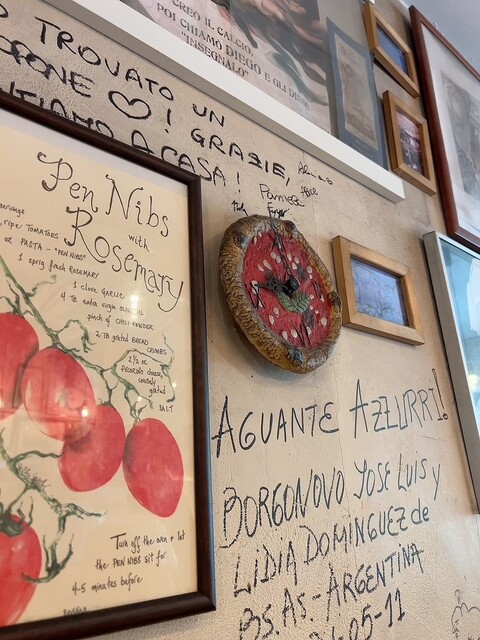 CREO IL CALCIO
POI CHIAMO DIEGO E GLI DISSE
"INSEGNALO"
O TROVATO UN
! GRAZIE,
A CASA!
Pamela
Pen Nibs
with
Rosemary
ripe TOMATOES
oz PASTA - "PEN NIBS"
1 sprig fresh ROSEMARY
1 clove GARLIC
4 TB. extra virgin
pinch of CHILI POWDER
2 TB grated BREAD
CRUMBS
2 1/2 oz
PECORINO cheese,
coarsely
grated
SALT
Turn off the oven & let
the PEN NIBS sit for
4-5 minutes before
AGUANTE AZZURRI!
BORGONOVO JOSE LUIS y
LIDIA DOMINGUEZ de
BS.AS.-ARGENTINA
05-11